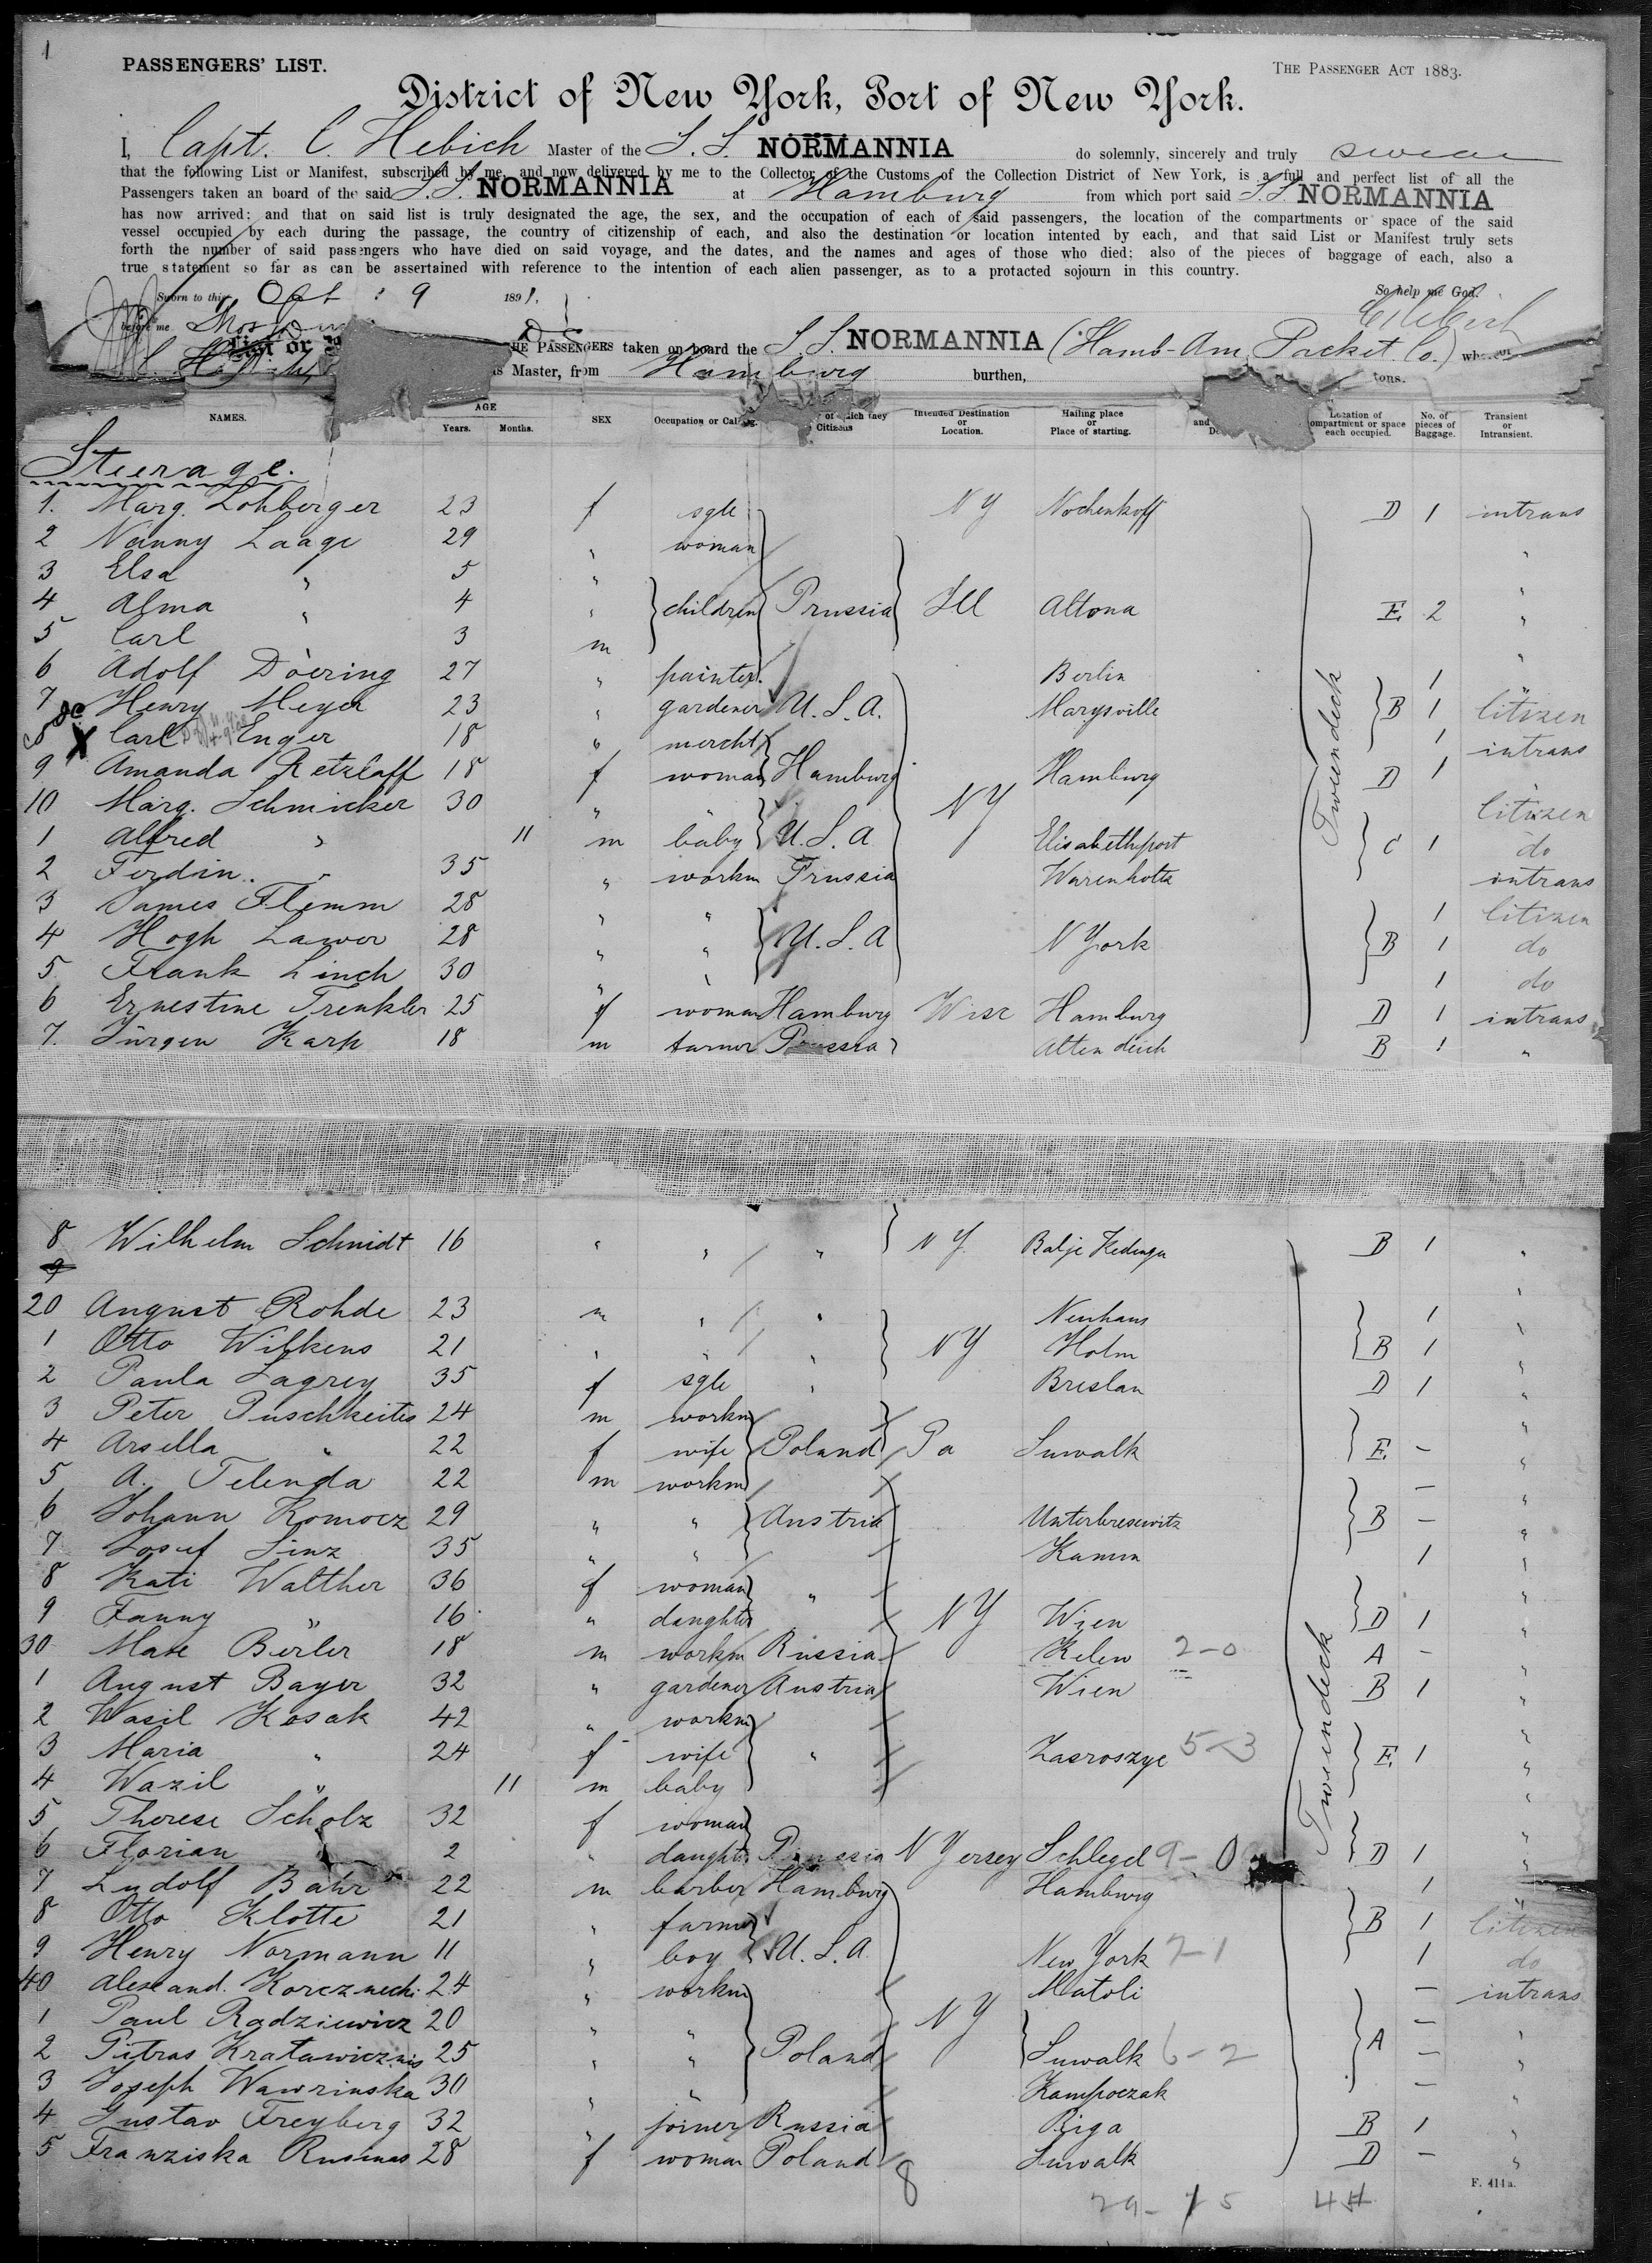 1
PASSENGERS' LIST.
THE PASSENGER ACT 1883.
District of New York, Port of New York.
I, Capt. C. Hebich Master of the S. S. NORMANNIA do solemnly, sincerely and truly swear
that the following List or Manifest, subscribed by me, and now delivered by me to the Collector of the Customs of the Collection District of New York, is a full and perfect list of all the
Passengers taken an board of the said S. S. NORMANNIA at Hamburg from which port said S. S. NORMANNIA
has now arrived; and that on said list is truly designated the age, the sex, and the occupation of each of said passengers, the location of the compartments or space of the said
vessel occupied by each during the passage, the country of citizenship of each, and also the destination or location intented by each, and that said List or Manifest truly sets
forth the number of said passengers who have died on said voyage, and the dates, and the names and ages of those who died; also of the pieces of baggage of each, also a
true statement so far as can be assertained with reference to the intention of each alien passenger, as to a protacted sojourn in this country.
Sworn to this 9 1891. So help me God.
before me
List or THE PASSENGERS taken on board the S. S. NORMANNIA (Hamb-Am. Packet Co.) whereof
is Master, from Hamburg burthen, tons.
NAMES. AGE Years. Months. SEX Occupation or Calling. of which they Citizens Intended Destination or Location. Hailing place or Place of starting. and Location of compartment or space each occupied. No. of pieces of Baggage. Transient or Intransient.
Steerage.
1. Marg. Lohberger 23 f sgle N Y Nochenkoff D 1 intrans
2 Nanny Laage 29 " woman "
3 Elsa " 5 " "
4 Alma " 4 " children Prussia Ill Altona E. 2 "
5 Carl 3 m "
6 Adolf Döering 27 " painter Berlin 1 "
7 Henry Meyer 23 " gardener U. S. A. Marysville B 1 Citizen
8 X Carl Enger 18 " mercht 1 intrans
9 Amanda Retzlaff 18 f woman Hamburg Hamburg D 1 "
10 Marg. Schmicker 30 " N Y Citizen
1 Alfred " 11 m baby U. S. A Elisabethport C 1 do
2 Ferdin. " 35 " workm Prussia Warenhotta intrans
3 James Flemm 28 " " 1 Citizen
4 Hogh Lawor 28 " " U. S. A N York B 1 do
5 Frank Linch 30 " " 1 do
6 Ernestine Trenkler 25 f woman Hamburg Wisc Hamburg D 1 intrans
7. Jürgen Karp 18 m farmer Prussia Altendeich B 1 "
Tweendeck
8 Wilhelm Schmidt 16 " " " N Y. Balje Kedingn B 1 "
9
20 August Rohde 23 m " " Neuhaus 1 "
1 Otto Wilkens 21 " " " N Y Holm B 1 "
2 Paula Lagrey 35 f sgle " Breslau D 1 "
3 Peter Puschkeites 24 m workm "
4 Arsella " 22 f wife Poland Pa Suwalk E. - "
5 A. Telenda 22 m workm - "
6 Johann Komocz 29 " " Austria Unterbresewitz B - "
7 Josef Sinz 35 " " Kamm 1 "
8 Kati Walther 36 f woman " "
9 Fanny " 16 " daughter N Y Wien D 1 "
30 Max Berler 18 m workm Russia Kelew 2-0 A - "
1 August Bayer 32 " gardener Austria Wien B 1 "
2 Wasil Kosak 42 " workm "
3 Maria " 24 f wife " Zasroszye 5-3 E. 1 "
4 Wazil " 11 m baby "
5 Therese Scholz 32 f woman "
6 Florian " 2 " daught. Prussia N Yersey Schlegel 9-0 D 1 "
7 Ludolf Bahr 22 m barber Hamburg Hamburg 1 "
8 Otto Klotte 21 " farmer B 1 Citizen
9 Henry Normann 11 " boy U. S. A. New York 2-1 1 do
40 Alexand. Korcznecki 24 " workm Matoli - intrans
1 Paul Radziewicz 20 " " N Y - "
2 Pietras Kratawicznis 25 " " Poland Suwalk 6-2 A - "
3 Joseph Wawrinska 30 " " Kampoczak - "
4 Gustav Freyberg 32 " joiner Russia Riga B 1 "
5 Franziska Rusinas 28 f woman Poland Suwalk D - "
Tweendeck
F. 414a.
8 29-15 44